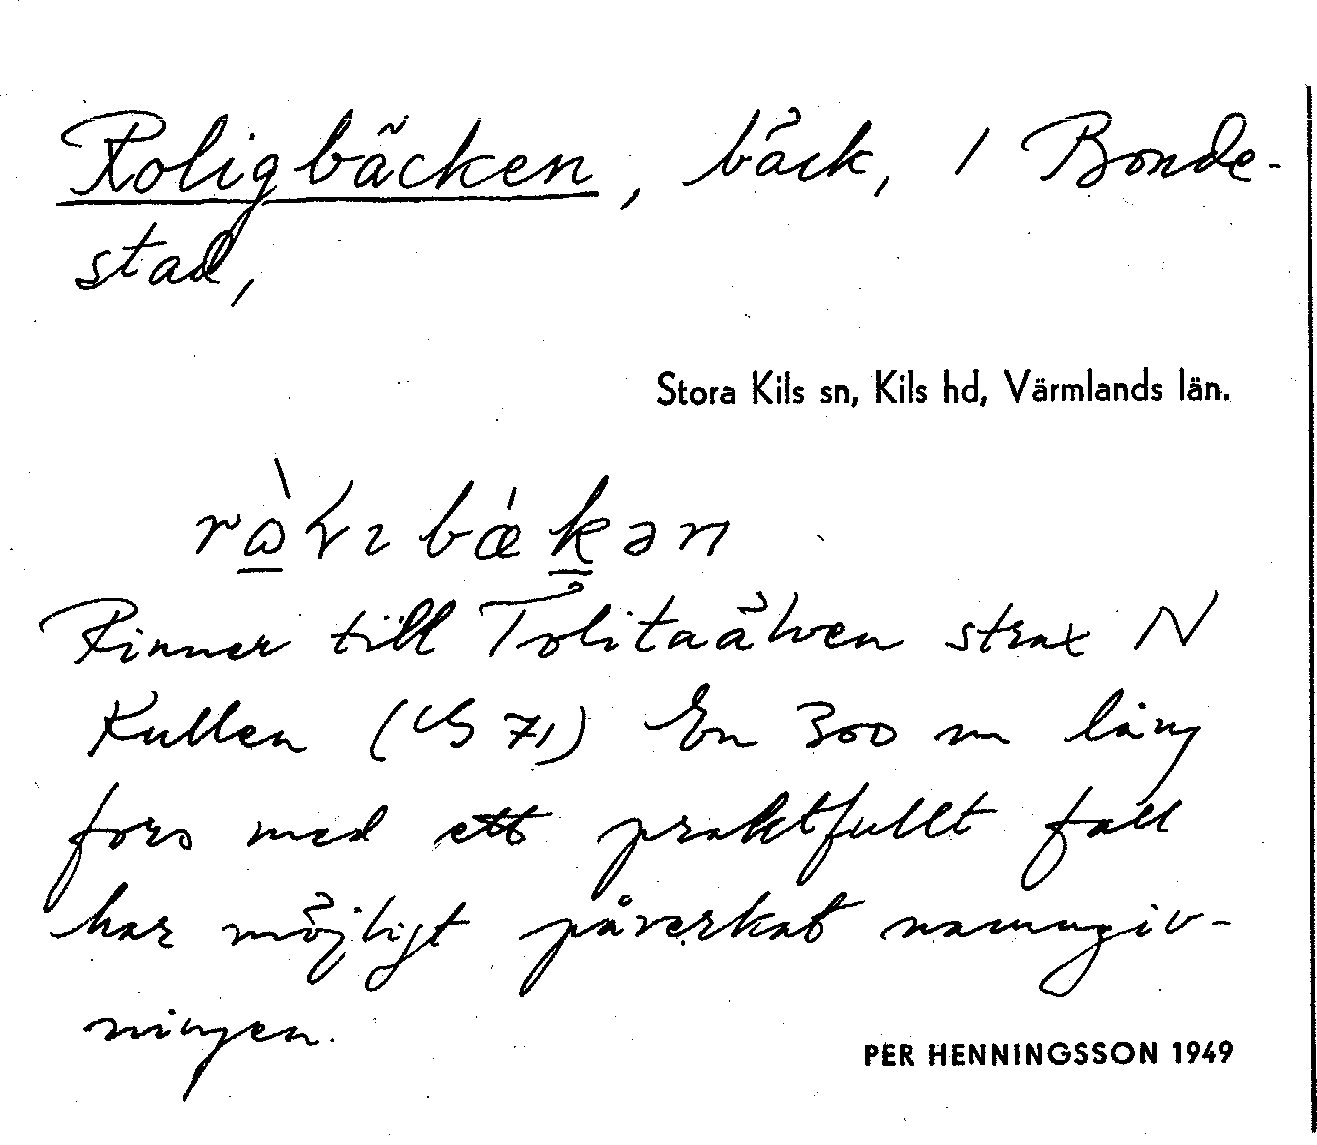 Roligbäcken, bäck, 1 Bonde-
stad,
Stora Kils sn, Kils hd, Värmlands län.
Rinner till Tolitaälven strax N
Kullen (LS 71) En 300 m lång
fors med ett praktfullt fall
har möjligt påverkat namngiv-
ningen.
PER HENNINGSSON 1949